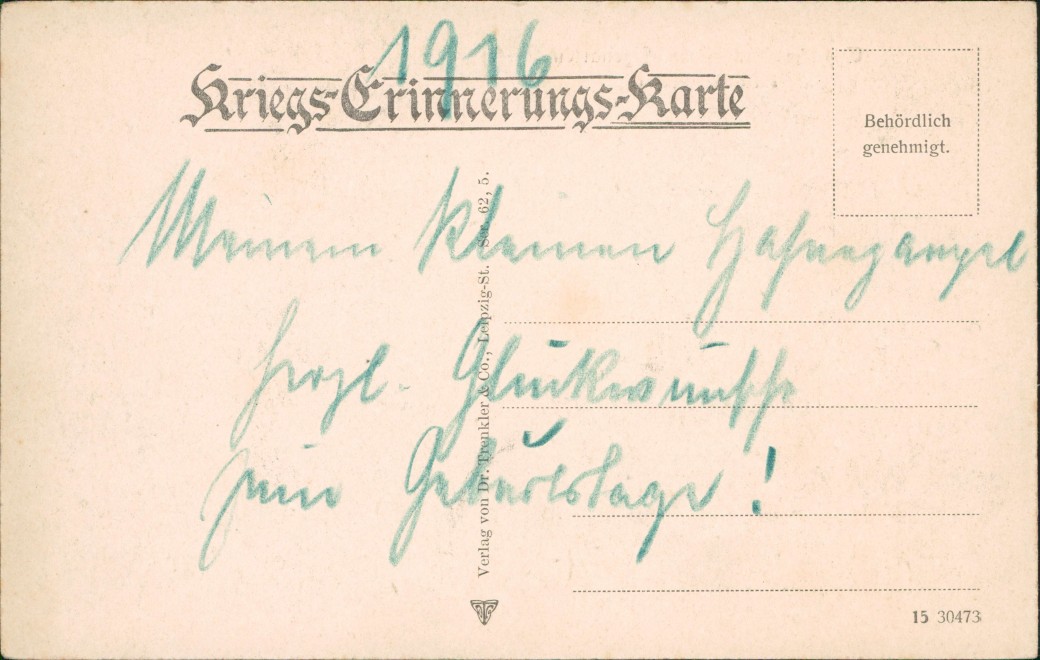 1916
Kriegs-Erinnerungs-Karte
Behördlich
genehmigt.
Meinem kleinen
herzl. Glückwünsche
zum Geburtstage!
Verlag von Dr. Trenkler & Co., Leipzig-St. Ser. 62, 5.
15 30473